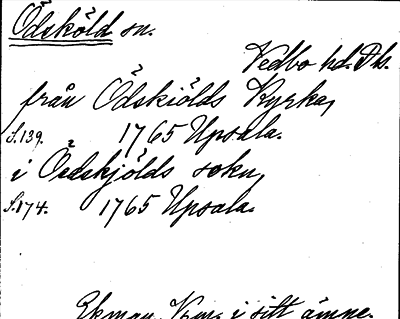 Ödsköld sn.
Vedbo hd. Ds.
från Ödskiölds Kyrka,
S.139. 1765 Upsala.
i Ödskjölds sokn,
S.174. 1765 Upsala.
Ekman, i sitt ämne.